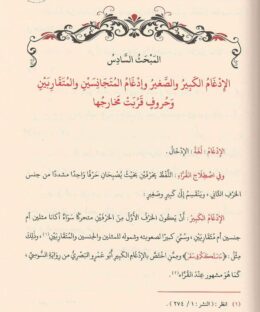 المَبْحَثُ السَّادِسُ
الإِدْغَامُ الكَبِيرُ والصَّغِيرُ وإِدْغَامُ المُتَجَانِسَيْنِ والمُتَقَارِبَيْنِ
وَحُروفٍ قَرُبَتْ مَخَارِجُها
الإِدْغَامُ: لُغَةً: الإِدْخَالُ.
وفي اصْطِلَاحِ القُرَّاءِ: اللَّفْظُ بِحَرْفَيْنِ بحيثُ يُصْبِحَانِ حَرْفًا وَاحِدًا مشددًا من جنس
الحرفِ الثَّاني، ويَنْقَسِمُ إِلَى كَبِيرٍ وصَغِيرٍ:
الإِدْغَامُ الكَبِيرُ: أَنْ يكونَ الحَرْفُ الأَوَّلُ مِنَ الحَرْفَيْنِ متحركًا سَوَاءً أَكانا مثلين أم
جنسين أم متقَارِبَيْنِ، وسُمِّيَ كبيرًا لصعوبته وشموله للمثلين والجنسين والمتقاربَيْنِ(١)، وذلك
مِثْلَ: ﴿سَلَكَكُمْ﴾، وممَّن اختَصَّ بالإِدْغَامِ الكَبيرِ أَبو عَمْرٍو البَصْرِيُّ من روَايَةِ السُّوسِيِّ،
كَمَا هُوَ مشهور عِنْدَ القُرَّاءِ.
(١) انظر: (النشر: ١ / ٢٧٤).